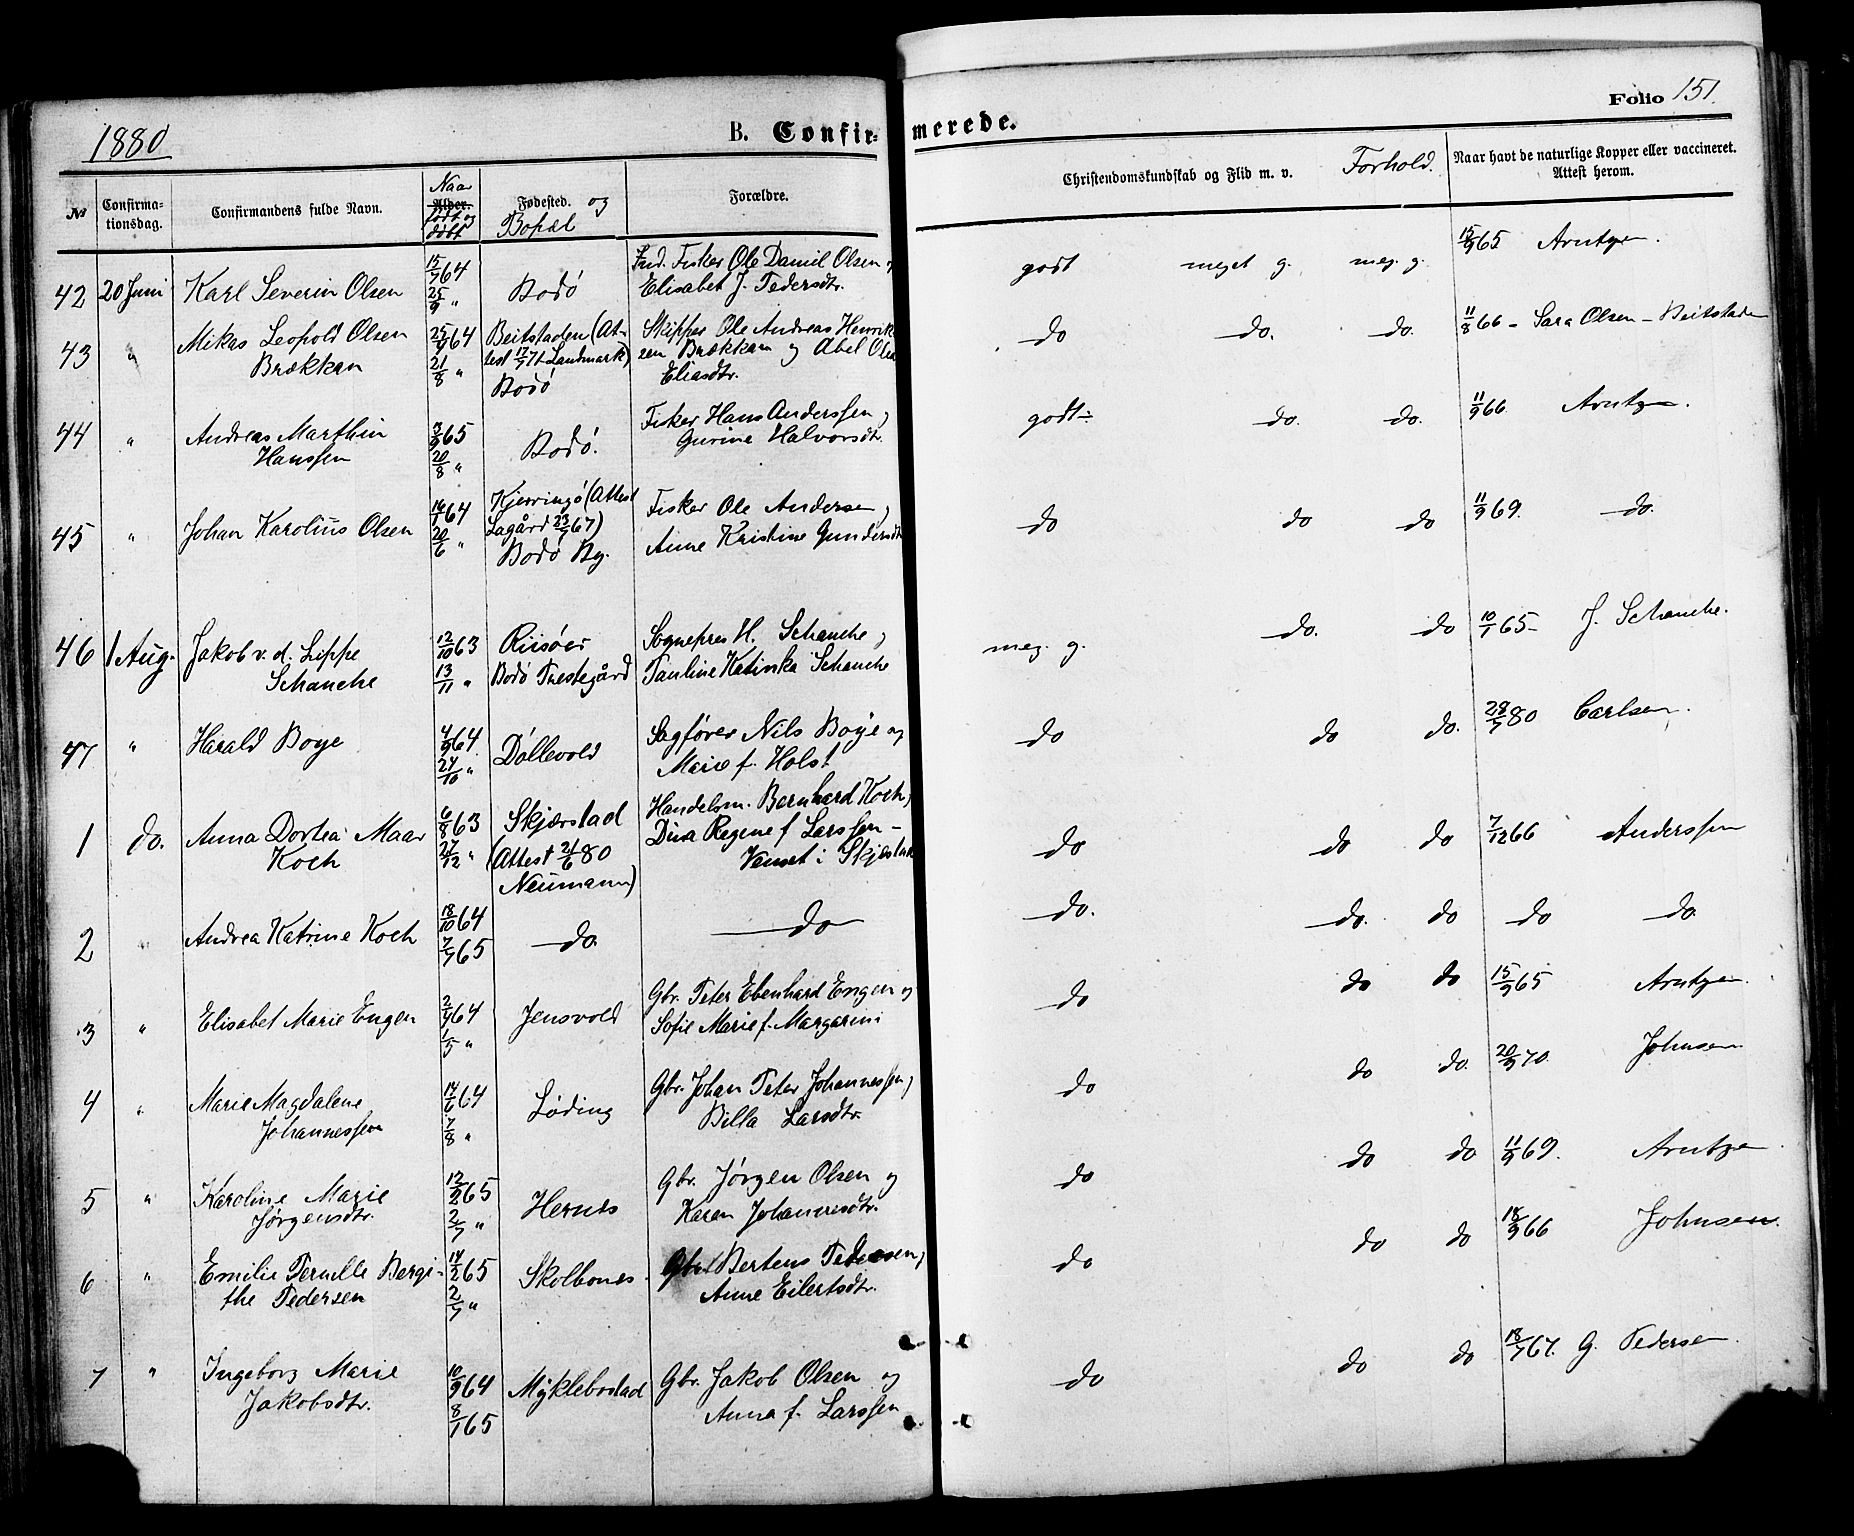 1880
B. Confir-
merede.
Folio 151.
No
Confirma-
tionsdag.
Confirmandens fulde Navn.
Naar
Alder.
født og
døbt
Fødested. og
Bopæl
Forældre.
Christendomskundskab og Flid m. v.
Forhold.
Naar havt de naturlige Kopper eller vaccineret.
Attest herom.
42 20 Juni Karl Severin Olsen 15/7 64 25/9 " Bodø
Ind. Fisker Ole Daniel Olsen og
Elisabet J. Pedersdtr.
godt meget g. meg. g. 15/9 65 Arntzen.
43 " Mikas Leopold Olsen
Brækkan
25/4 64
21/8 "
Beitstaden (At-
test 17/7 71 Landmark)
Bodø
Skipper Ole Andreas Henrik-
sen Brækkan og Abel Olea
Eliasdtr.
do do. do. 11/8 66 - Sara Olsen - Beitstaden
44 " Andreas Marthin
Hanssen
3/3 65
20/8 "
Bodø.
Fisker Hans Anderssen og
Gurine Halvorsdtr.
godt÷ do. do. 11/9 66. Arntzen.
45 " Johan Karolius Olsen
14/1 64
20/6 "
Kjerringø (Attest
Lagård 23/7 67)
Bodø By.
Fisker Ole Andersen og
Anne Kristine Gundersdtr.
do do do 11/9 69. do.
46 1 Aug. Jakob v. d. Lippe
Schanche
12/10 63
13/11 "
Riisøer
Bodø Prestegård
Sognepres H. Schanche og
Pauline Katinka Schanche
meg. g. do. do 10/7 65- J. Schanche.
47 " Harald Boye
4/9 64.
24/10 "
Døllevold
Sagfører Nils Boye og
Marie f. Holst
do do do. 28/7 80 Carlsen.
1 do. Anna Dortea Maar
Koch
6/8 63
27/12 "
Skjærstad
(Attest 21/6 80
Neumann)
Handelsm. Bernhard Koch og
Dina Regine f. Larssen -
Venset i Skjerstad
do do do 7/12 66 Anderssen
2 " Andrea Katrine Koch
18/10 64
7/7 65
do
do
do. do. do do do
3 " Elisabet Marie Engen
2/4 64
1/5 "
Jensvold
Gbr. Peter Ebenhard Engen og
Sofie Marie f. Margarini
do do do 15/9 65 Arntzen.
4 " Marie Magdalene
Johannessen
14/6 64
7/8 "
Løding
Gbr. Johan Peter Johannessen og
Billa Larsdtr.
do do do. 20/9 70. Johnsen
5 " Karoline Marie
Jørgensdtr.
12/2 65
2/7 "
Hernes
Gbr. Jørgen Olsen og
Karen Johannesdtr.
do do do 11/9 69. Arntzen
6 " Emilie Pernelle Bergi-
the Pedersen
14/2 65
2/7 "
Skolbones
Gbr. Bertens Pedersen og
Anne Eilertsdtr.
do do do 18/9 66 Johnsen.
7 " Ingeborg Marie
Jakobsdtr.
10/9 64
8/1 65
Myklebostad
Gbr. Jakob Olsen og
Anna f. Larssen
do do do 18/7 67. G. Pedersen.